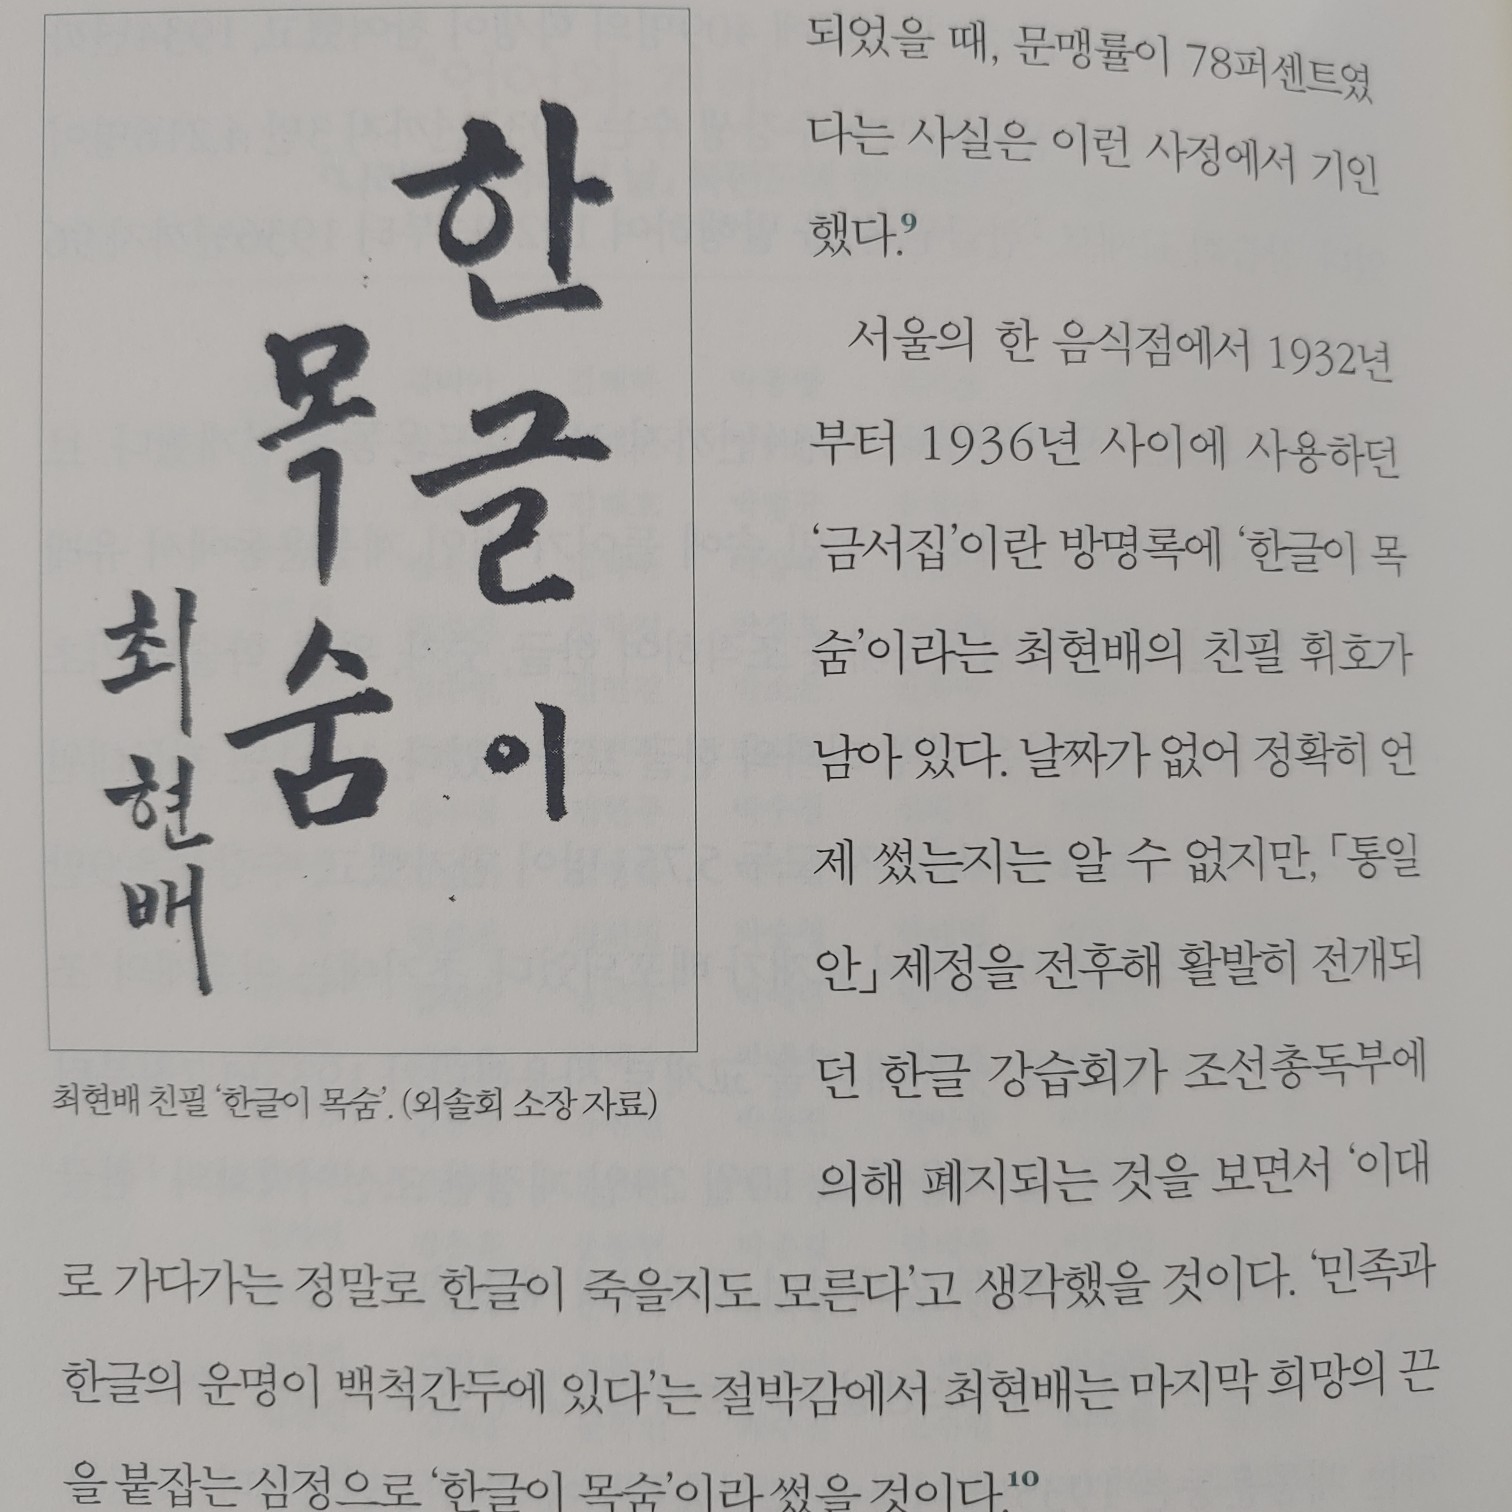 한글이
목숨
최현배
최현배 친필 ‘한글이 목숨’. (외솔회 소장 자료)
되었을 때, 문맹률이 78퍼센트였
다는 사실은 이런 사정에서 기인
했다.9
서울의 한 음식점에서 1932년
부터 1936년 사이에 사용하던
‘금서집’이란 방명록에 ‘한글이 목
숨’이라는 최현배의 친필 휘호가
남아 있다. 날짜가 없어 정확히 언
제 썼는지는 알 수 없지만, 「통일
안」 제정을 전후해 활발히 전개되
던 한글 강습회가 조선총독부에
의해 폐지되는 것을 보면서 ‘이대
로 가다가는 정말로 한글이 죽을지도 모른다’고 생각했을 것이다. ‘민족과
한글의 운명이 백척간두에 있다’는 절박감에서 최현배는 마지막 희망의 끈
을 붙잡는 심정으로 ‘한글이 목숨’이라 썼을 것이다.10